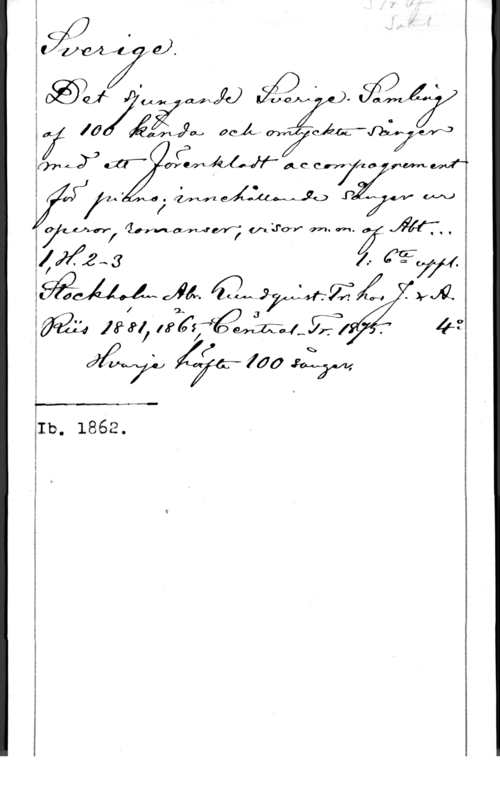 Sverige.
Det sjungande Sverige. Samling
af 100 kända och omtyckta sånger
med ett förenkladt accompagnement
för piano; innehållande sånger ur
operor, romanser, visor m.m. af Abt...
1, H. 2-3 1: 6te uppl.
Stockholm Abr. Lundquist. Tr. hos J. & A.
Riis 1881, 1865, Central-Tr. 1875. 4:o
Hvarje häfte 100 sånger.
Ib. 1862.